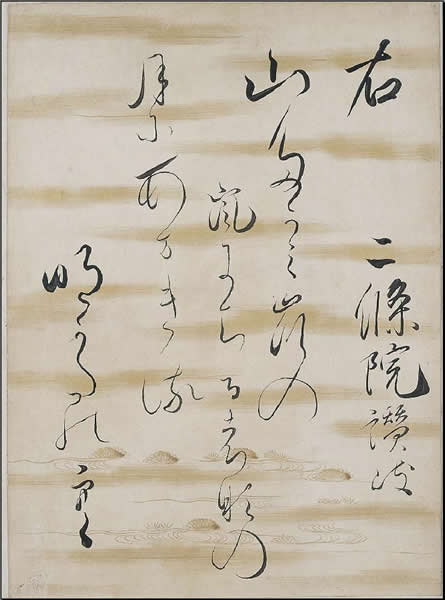 右
二條院讚岐
山たかみ嶺の
嵐にちる花の
月にあまきる
明かたの空